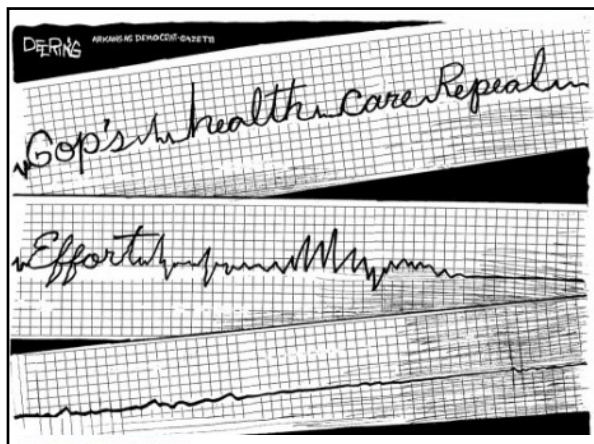 DEERING ARKANSAS DEMOCRAT-GAZETTE
Gop's health care Repeal
Effort